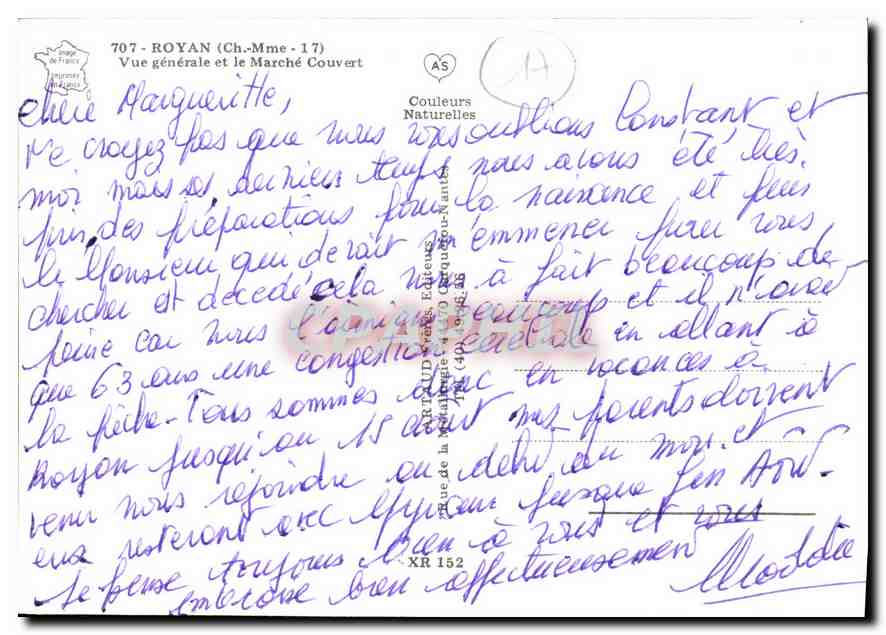 image
de France
707 - ROYAN (Ch.-Mme - 17)
Vue générale et le Marché Couvert
AS
Couleurs
Naturelles
1A
chère Margueritte,
Ne croyez pas que nous vous oublions Constant et
moi mais ces derniers temps nous avons été très
pris, des préparations pour la naissance et puis
le Monsieur qui devait m'emmener pour vous
chercher est décédé cela nous à fait beaucoup de
peine car nous l'aimions beaucoup et il n'avait
que 63 ans une congestion cérébrale en allant à
la pêche. Nous sommes donc en vacances à
Royan jusqu'au 15 août mes parents doivent
venir nous rejoindre au début du mois et
eux resteront avec Myriam jusque fin Août.
Je pense toujours bien à vous et vous
embrasse bien affectueusement
ARTAUD Frères, Editeurs
Rue de la Métallurgie - 44470 Carquefou-Nantes
Tél. (40)
XR 152
CPAPHIL